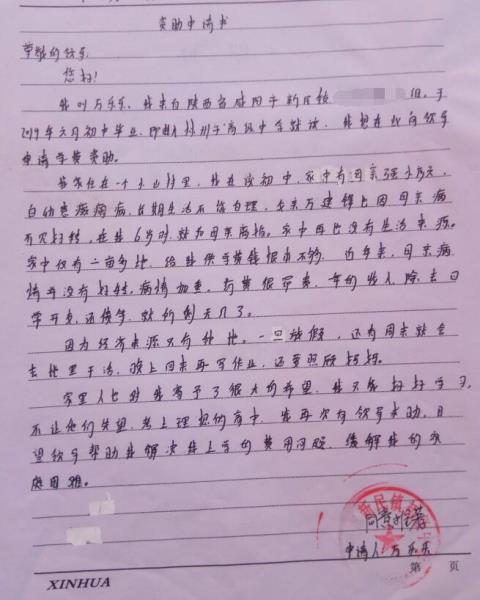 资助申请书
尊敬的领导:
您好!
我叫万乐乐,我来自陕西省咸阳市新民镇 组,于
2019年六月初中毕业,即将 州中高级中学就读,我想在此向领导
申请学费资助。
我家住在一个小山村里,我在读初中,家中有母亲
自幼患癫痫病,长期生活不能自理,父亲万建 因母亲病
而欠 ,在我6岁时,就为母亲病 。家中再也没有生活来源。
家中仅有二亩多地,给我供学费钱根本不够。近年来,母亲病
情并没有好转,病情加重,药费很昂贵,年的收入除去日
常开支,还债务,就所剩无几了。
因为经济来源只有种地。一旦放假,还有周末就会
去地里干活,晚上回来再写作业,还要照顾妈妈。
家里人也对我寄予了很大的希望,我只能好好学习,
不让他们失望,考上理想的高中,我再次向领导求助,希
望领导帮助我解决我上学的费用问题,缓解我的家
庭困难。
同意
新民镇
申请人:万乐乐
第 页
XINHUA